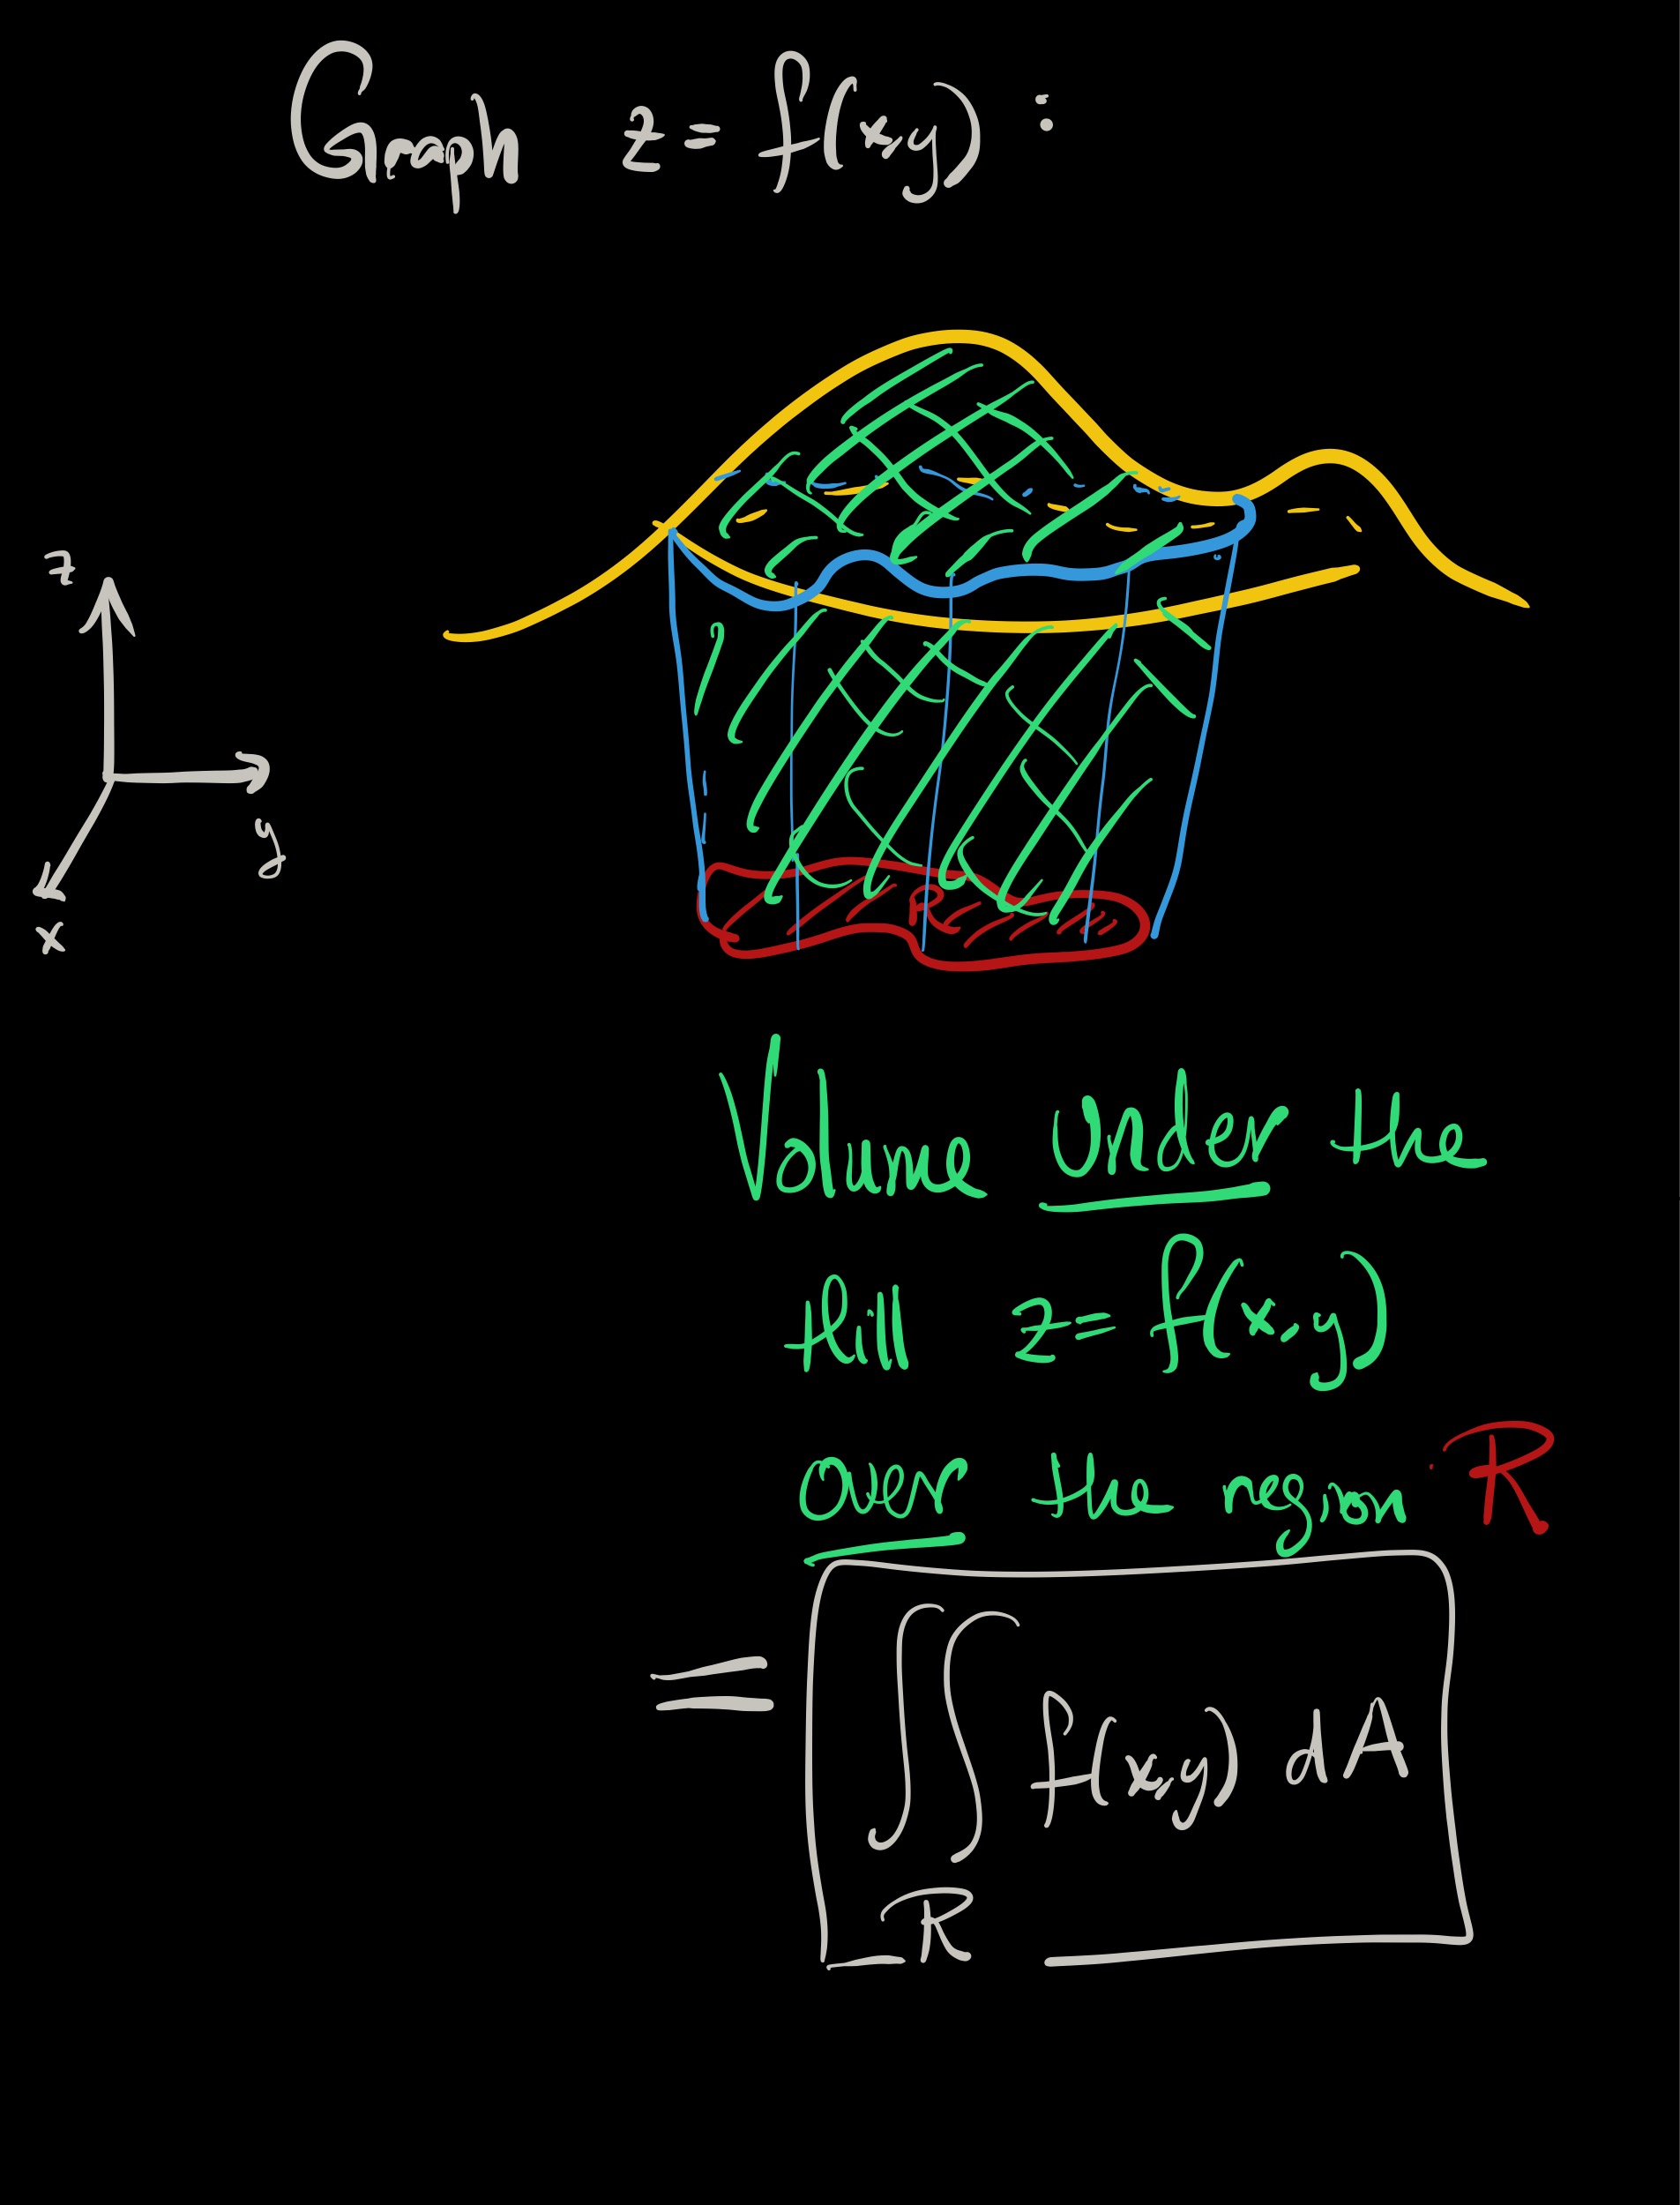 Graph z = f(x,y) :
z
y
x
R
Volume under the
hill z = f(x,y)
over the region R
= ∬ f(x,y) dA
R